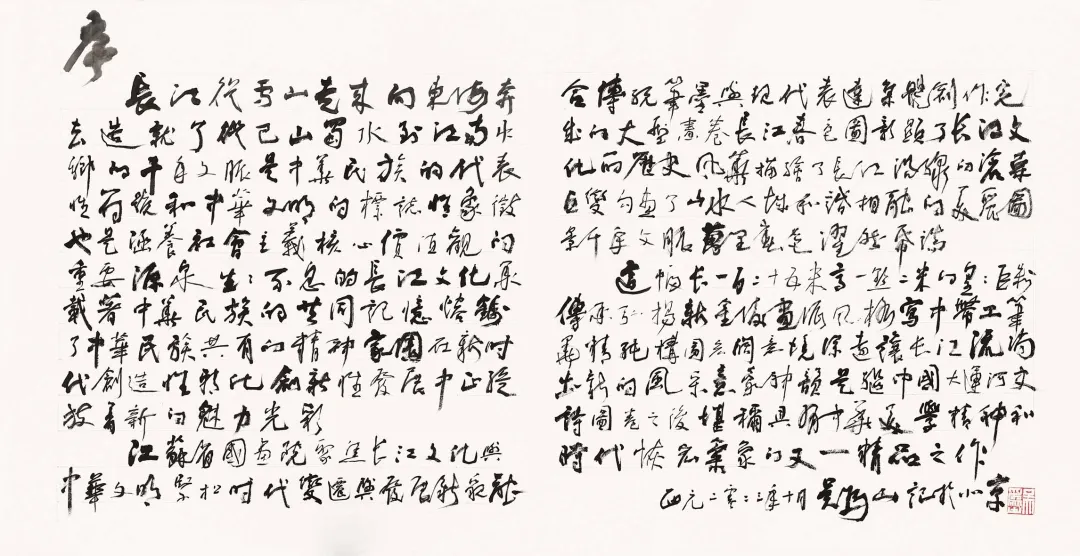 序
長江從雪山走來向東海奔
去造就了從巴山蜀水到江南水
鄉的千年文脈是中華民族的代表
性符號和中華文明的標誌性象徵
也是涵養社會主義核心價值觀的
重要源泉生生不息的長江文化承
載著中華民族的共同記憶熔鑄
了中華民族共有的精神家園在新時
代創造性轉化創新性發展中正綻
放着新的魅力光彩
江蘇省國畫院聚焦長江文化與
中華文明緊扣時代變遷與發展新象融
合傳統筆墨與現代表達集體創作完
成的大型畫卷長江春色圖彰顯了長江文
化的歷史風華描繪了長江沿線的滄桑
巨變勾畫了山水人城和諧相融的美麗圖
景千年文脈萬里
這幅長一百二十五米高一點二米的皇皇巨制
傳承弘揚新金陵畫派風格寫中帶工筆
墨精純構圖宏闊意境深遠讓長江流淌
出新的風采意象神韻是繼中國大運河史
詩圖卷之後堪稱具有中華美學精神和
時代恢宏氣象的又一精品之作
西元二零二二年十月吳為山記於北京